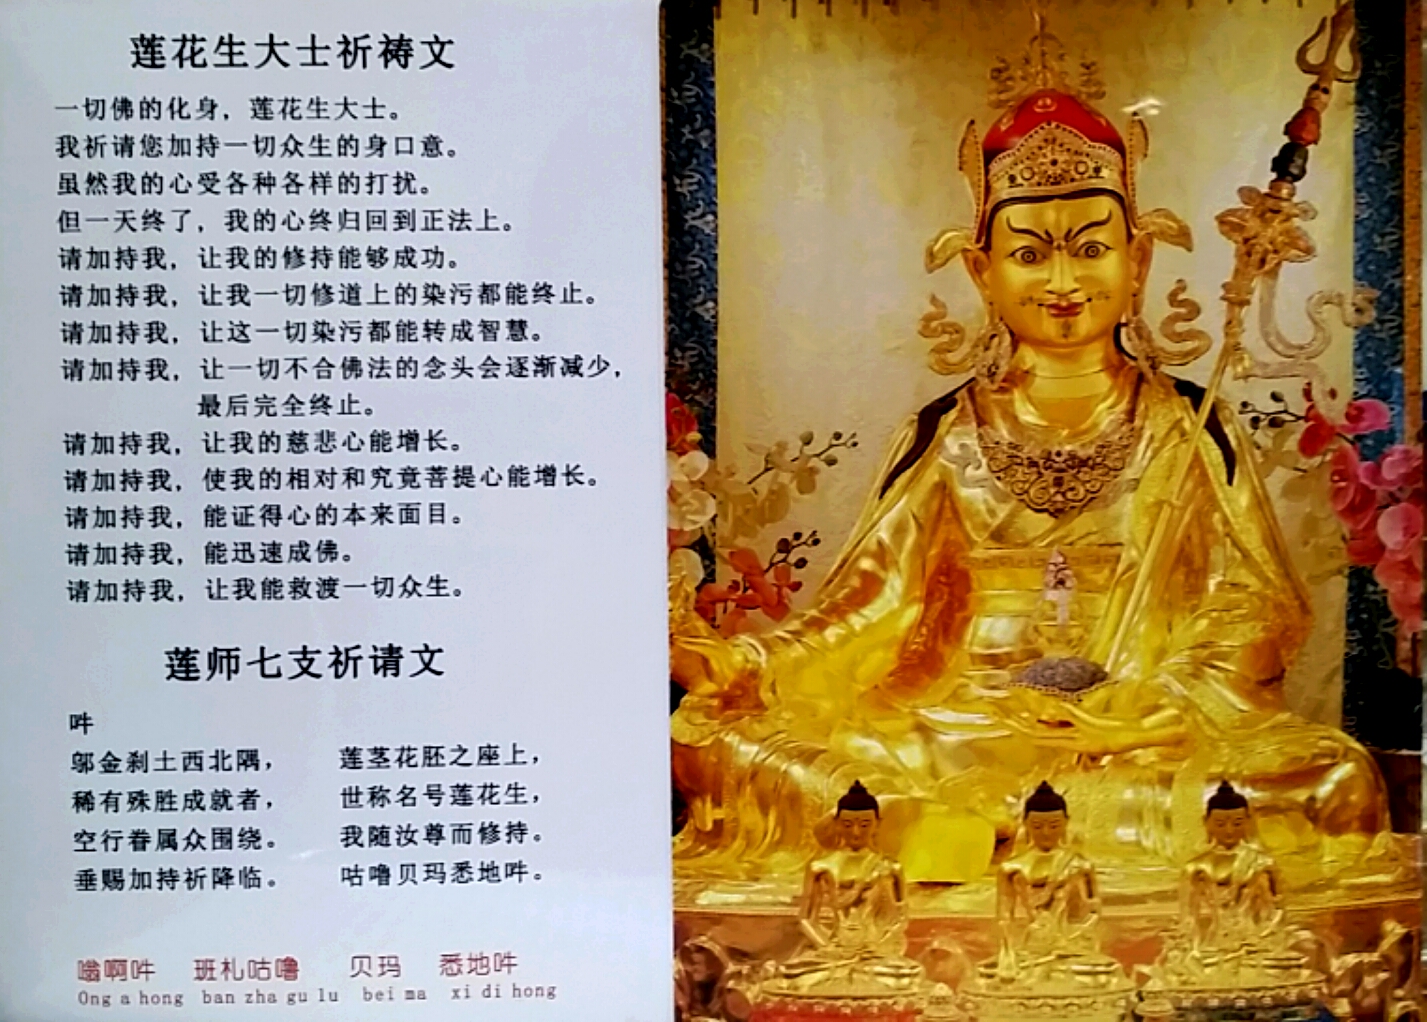 莲花生大士祈祷文
一切佛的化身，莲花生大士。
我祈请您加持一切众生的身口意。
虽然我的心受各种各样的打扰。
但一天终了，我的心终归回到正法上。
请加持我，让我的修持能够成功。
请加持我，让我一切修道上的染污都能终止。
请加持我，让这一切染污都能转成智慧。
请加持我，让一切不合佛法的念头会逐渐减少，
最后完全终止。
请加持我，让我的慈悲心能增长。
请加持我，使我的相对和究竟菩提心能增长。
请加持我，能证得心的本来面目。
请加持我，能迅速成佛。
请加持我，让我能救渡一切众生。
莲师七支祈请文
吽
邬金刹土西北隅， 莲茎花胚之座上，
稀有殊胜成就者， 世称名号莲花生，
空行眷属众围绕。 我随汝尊而修持。
垂赐加持祈降临。 咕噜贝玛悉地吽。
嗡啊吽 班札咕噜 贝玛 悉地吽
Ong a hong ban zha gu lu bei ma xi di hong